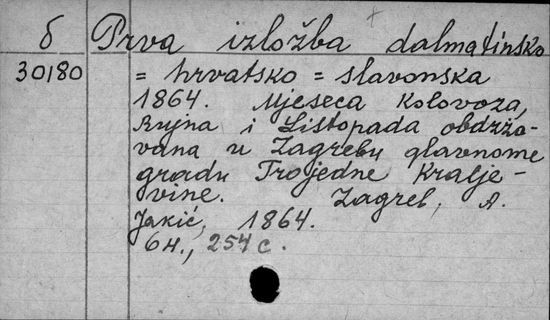 б Prva izložba dalmatinsko
30180 = hrvatsko = slavonska
1864. Mjeseca Kolovoza,
Rujna i Listopada obdržo-
vana u Zagrebu glavnome
gradu Trojedne Kralje-
vine. Zagreb, A.
Jakić, 1864.
6н., 254 с.